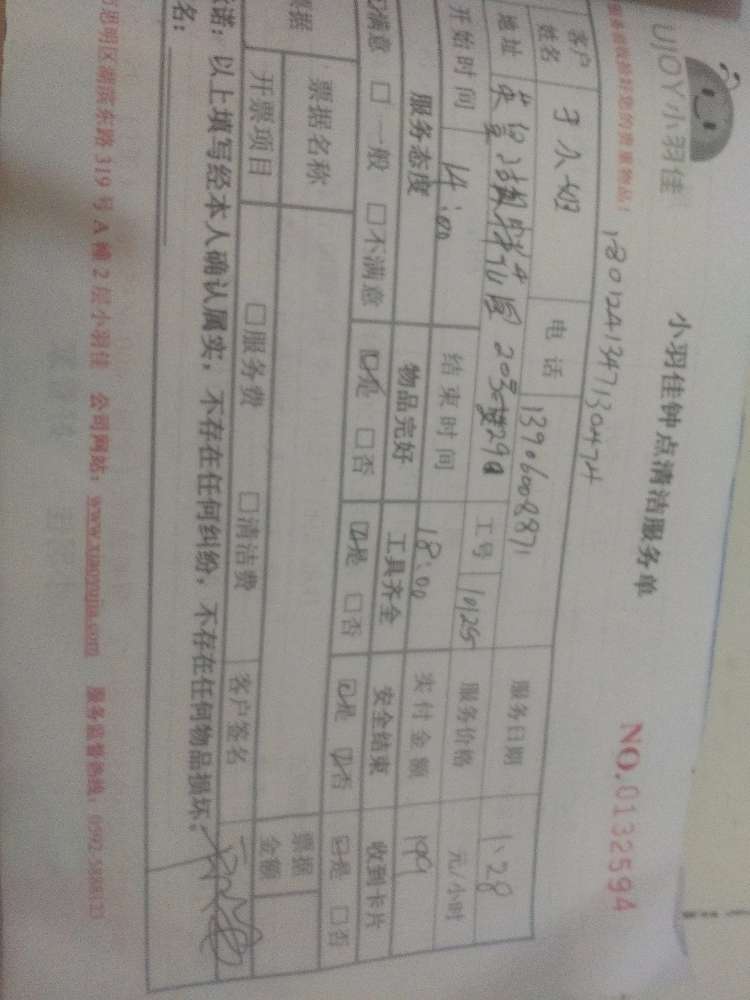 UJOY小羽佳
小羽佳钟点清洁服务单
NO.0132594
1801241347130474
客户姓名 电话 13906008871 服务日期 1.28
地址 203 29a 工号 10125 服务价格 元/小时
开始时间 14:00 结束时间 18:00 实付金额 199
服务态度 物品完好 工具齐全 安全结束 收到卡片
☑满意 □一般 □不满意 ☑是 □否 ☑是 □否 ☑是 ☑否 ☑是 □否
票据 票据名称 票据金额
开票项目 □服务费 □清洁费 客户签名
诺：以上填写经本人确认属实，不存在任何纠纷，不存在任何物品损坏。
名：
思明区湖滨东路 319 号 A 幢 2 层小羽佳 公司网站：www.xiaoyujia.com 服务监督热线：